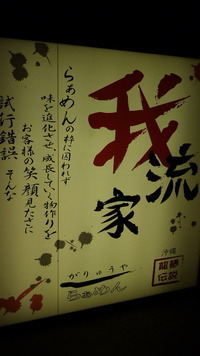 我流家
らぁめんの枠に囚われず
味を進化させ、成長していく物作りを
お客様の笑顔見たさに
試行錯誤 そんな
がりゅうや
らぁめん
沖縄
龍藤
伝説